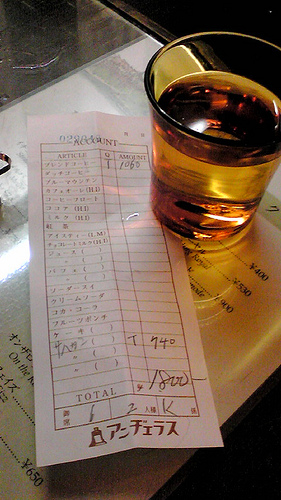 ACCOUNT
ARTICLE AMOUNT
ブレンドコーヒー 1 1060
ダッチコーヒー
ブルーマウンテン
カフェオーレ(H.I)
コーヒーフロート
ココア(H.I)
ミルク(H.I)
紅茶
アイスティー(L.M)
チョコレートミルク(H.I)
ジュース( )
〃( )
パフェ( )
〃( )
ソーダースイ
クリームソーダ
コカ・コーラ
フルーツポンチ
ケーキ( )
( ) 1 740
〃( )
〃( )
TOTAL ¥1800-
御席 1 2 人様 K 係
アンヂェラス
¥400
¥530
¥650